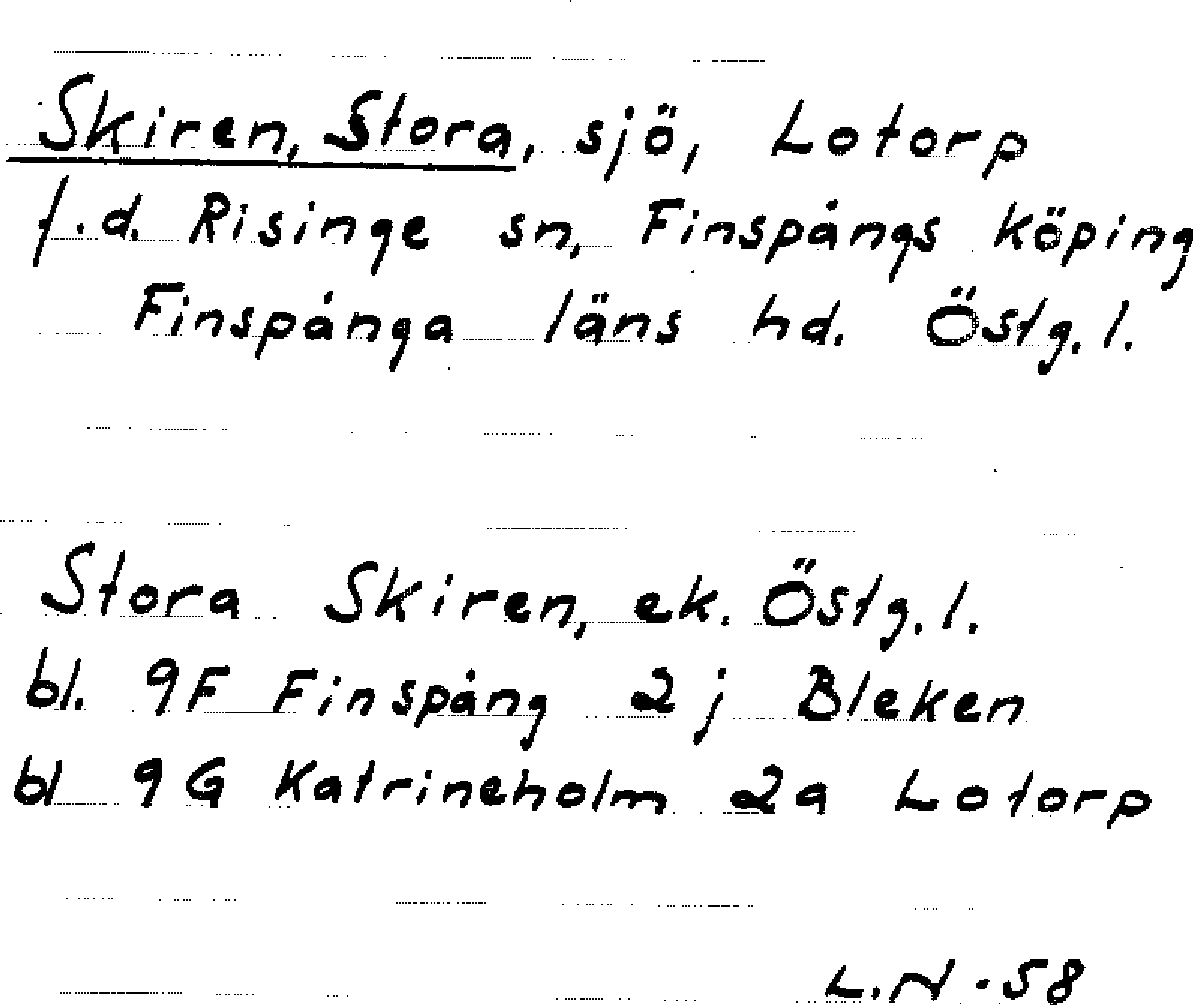 Skiren, Stora, sjö, Lotorp
f.d. Risinge sn, Finspångs köping
Finspånga läns hd. Östg.l.
Stora Skiren, ek. Östg.l.
bl. 9F Finspång 2j Bleken
bl 9G Katrineholm 2a Lotorp
L.N -58